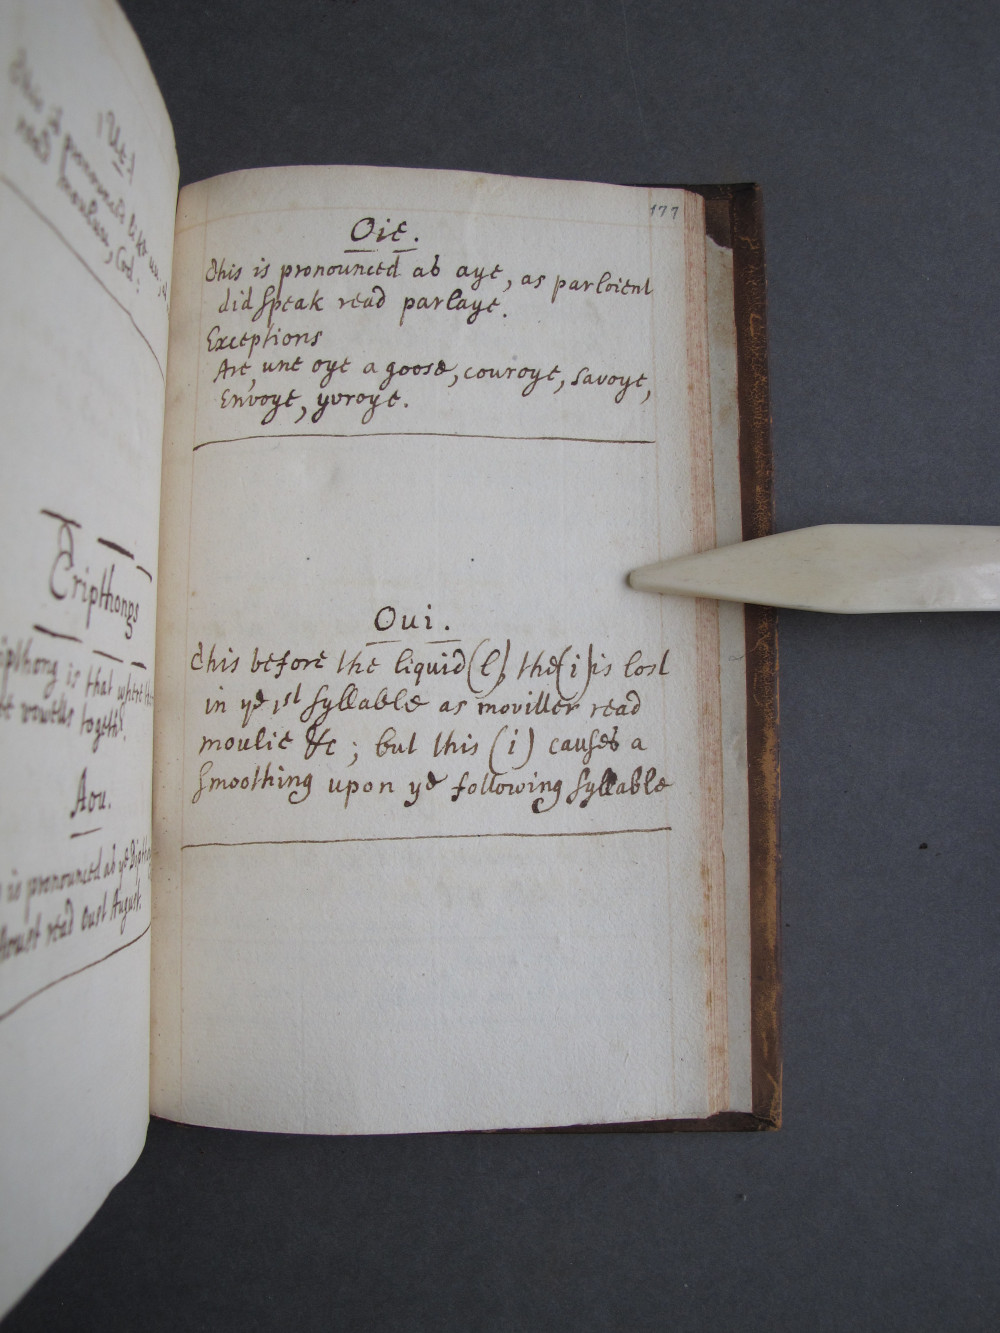 Tripthongs
is that where
vowells togeth^r.
Aou.
is pronounced as y^e
Aoust read oust August.
177
Oie.
This is pronounced as aye, as parloient
did speak read parlaye.
Exceptions
Are, une oye a goose, couroye, savoye,
Envoye, yvroye.
Oui.
This before the liquid (l), the (i) is lost
in y^e 1^st syllable as moviller read
moulie &c ; but this (i) causes a
smoothing upon y^e following syllable